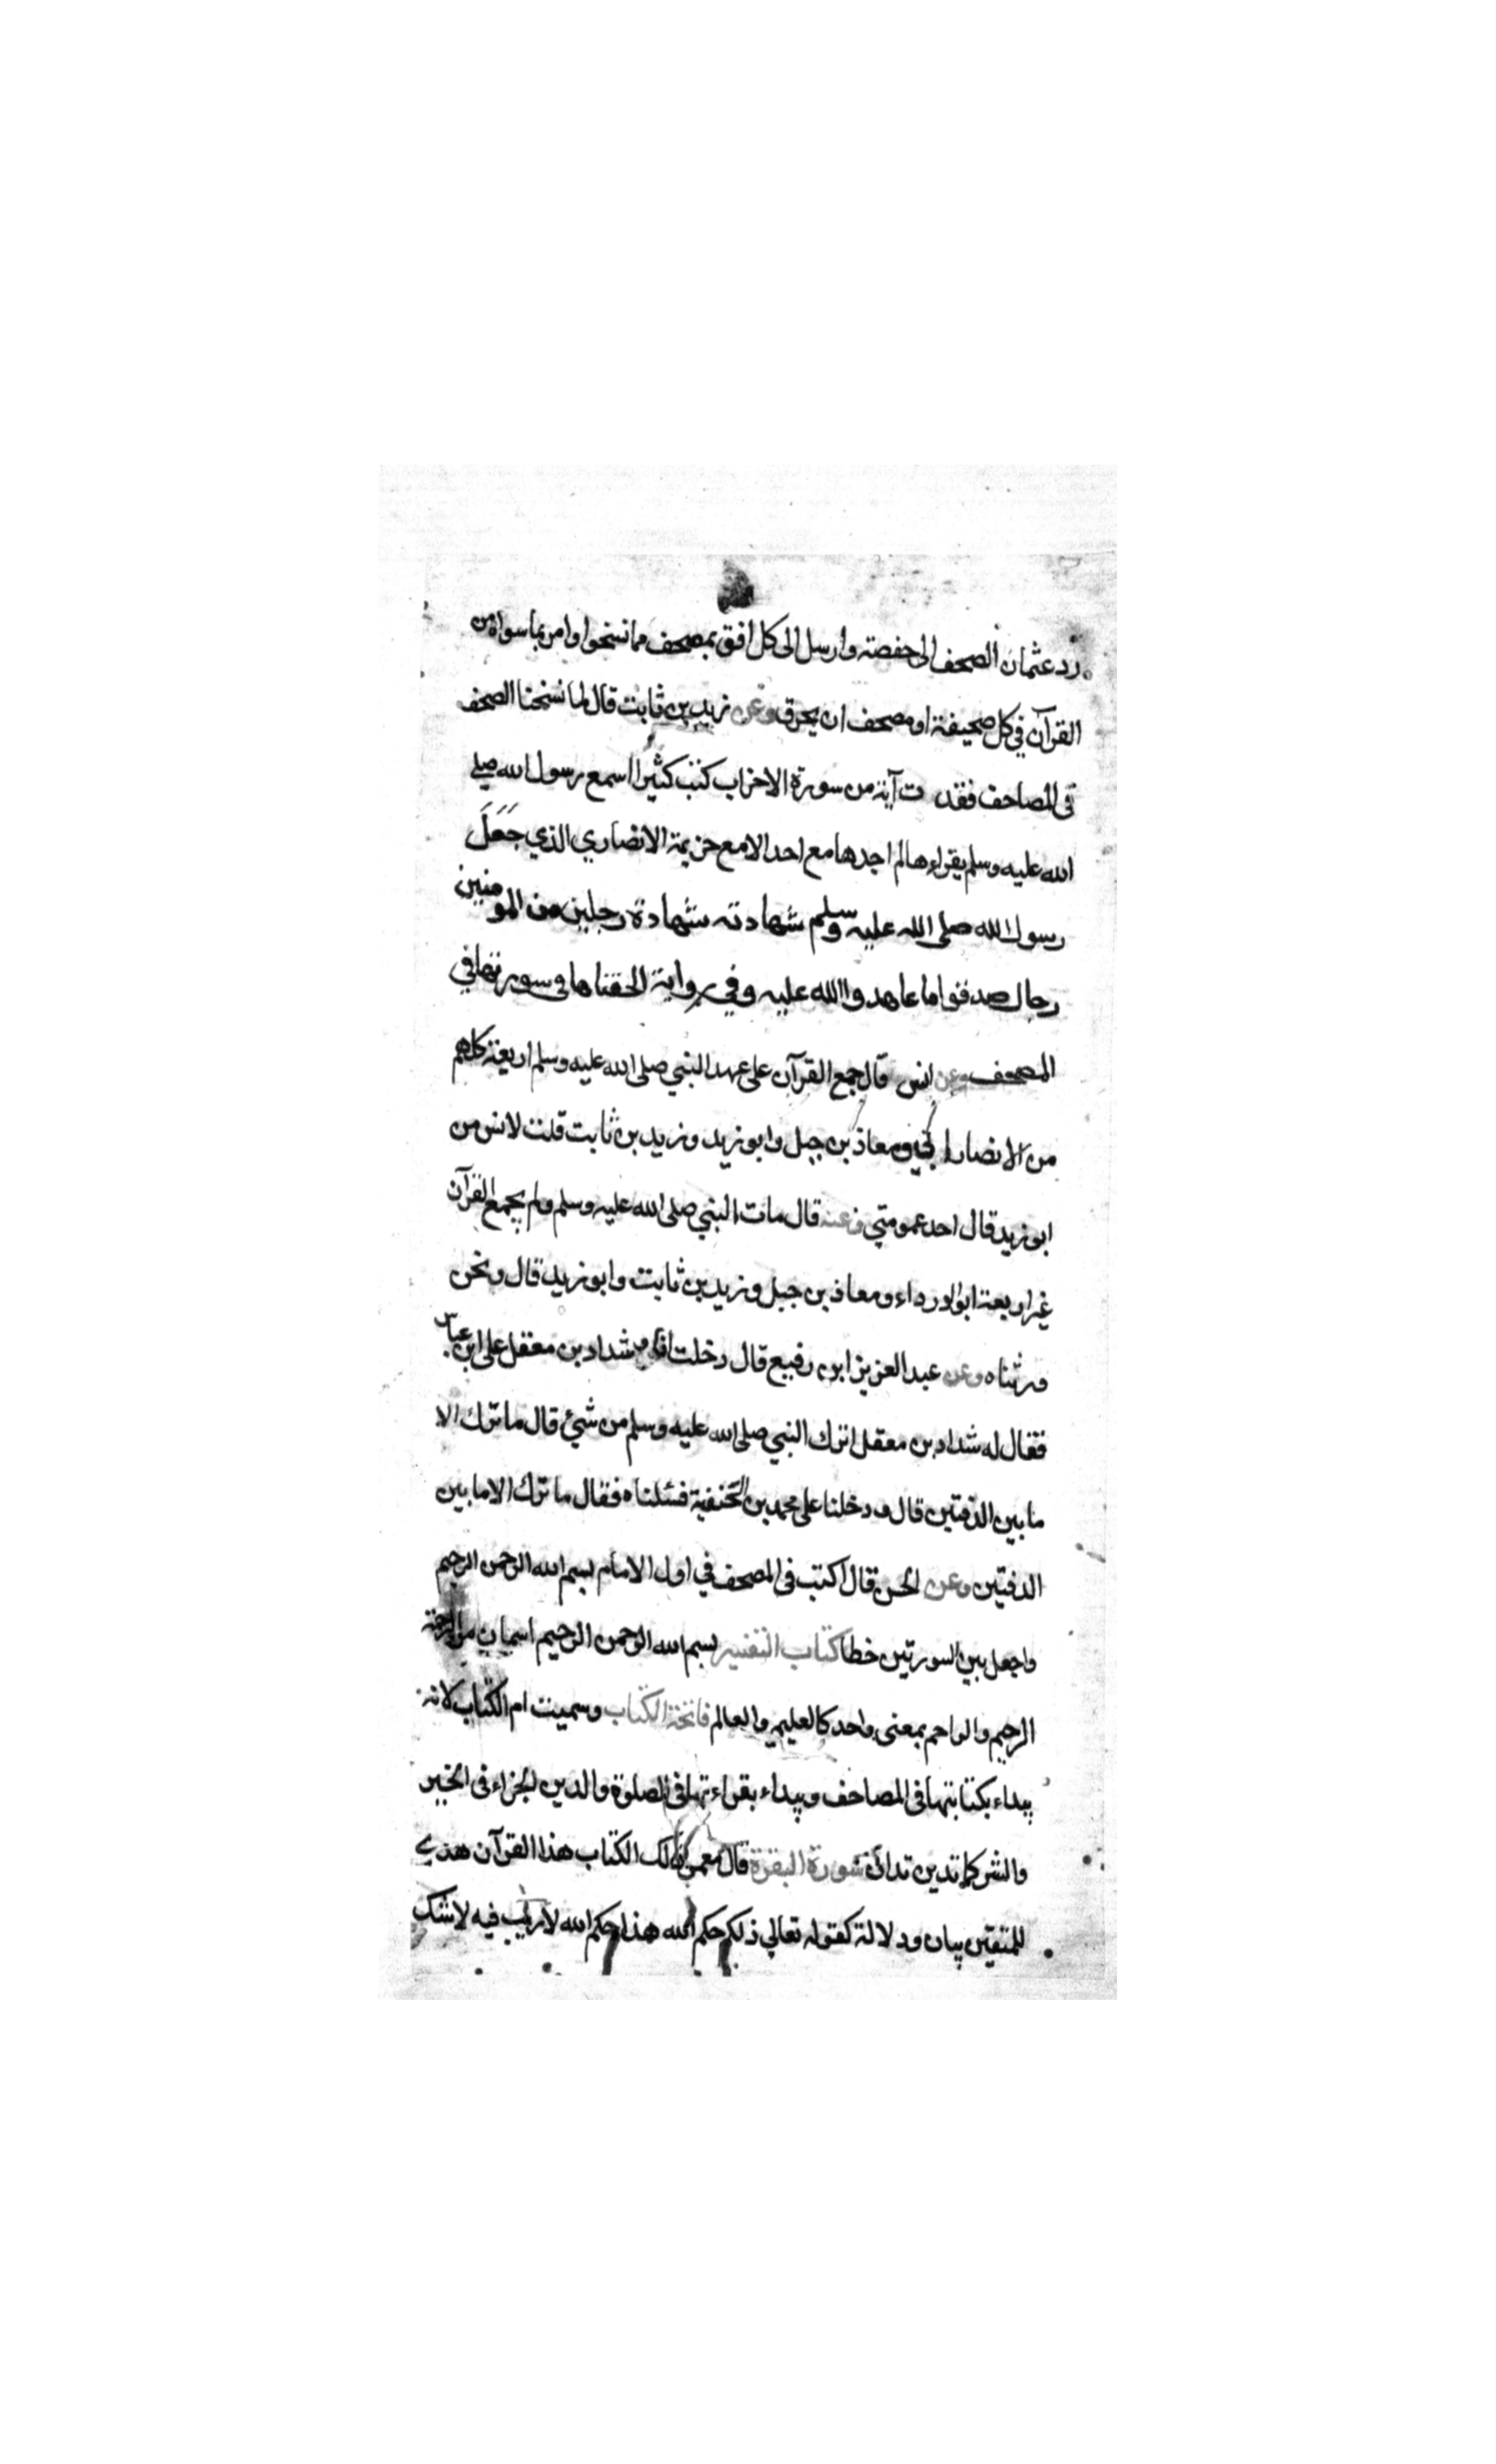 رد عثمان الصحف الى حفصة وارسل الى كل افق بمصحف مما نسخوا وامر بما سواه من
القرآن في كل صحيفة او مصحف ان يحرق وعن زيد بن ثابت قال لما نسخنا الصحف
في المصاحف فقدت آية من سورة الاحزاب كنت كثيرا اسمع رسول الله صلى
الله عليه وسلم يقراءها لم اجدها مع احد الا مع خزيمة الانصاري الذي جَعَلَ
رسول الله صلى الله عليه وسلم شهادته شهادة رجلين من المومنين
رجال صدقوا ما عاهدوا الله عليه وفي رواية الحقناها في سورتها في
المصحف وعن انس قال جمع القرآن على عهد النبي صلى الله عليه وسلم اربعة كلهم
من الانصار ابي ومعاذ بن جبل وابو زيد وزيد بن ثابت قلت لانس من
ابو زيد قال احد عمومتي وعنه قال مات النبي صلى الله عليه وسلم ولم يجمع القرآن
غير اربعة ابو الدرداء ومعاذ بن جبل وزيد بن ثابت وابو زيد قال ونحن
ورثناه وعن عبد العزيز ابن رفيع قال دخلت انا و شداد بن معقل على ابن عباس
فقال له شداد بن معقل اترك النبي صلى الله عليه وسلم من شيئ قال ما ترك الا
ما بين الدفتين قال ودخلنا على محمد بن الحنفية فسئلناه فقال ما ترك الا ما بين
الدفتين وعن الحسن قال اكتب في المصحف في اول الامام بسم الله الرحمن الرحيم
واجعل بين السورتين خطا كتاب التفسير بسم الله الرحمن الرحيم اسمان من الرحمة
الرحيم والراحم بمعنى واحد كالعليم والعالم فاتحة الكتاب وسميت ام الكتاب لانه
يبداء بكتابتها في المصاحف ويبداء بقراءتها في الصلوة والدين الجزاء في الخير
والشر كما تدين تدان سورة البقرة قال معمر ذلك الكتاب هذا القرآن هدي
للمتقين بيان ودلالة كقوله تعالي ذلكم حكم الله هذا حكم الله لا ريب فيه لا شك